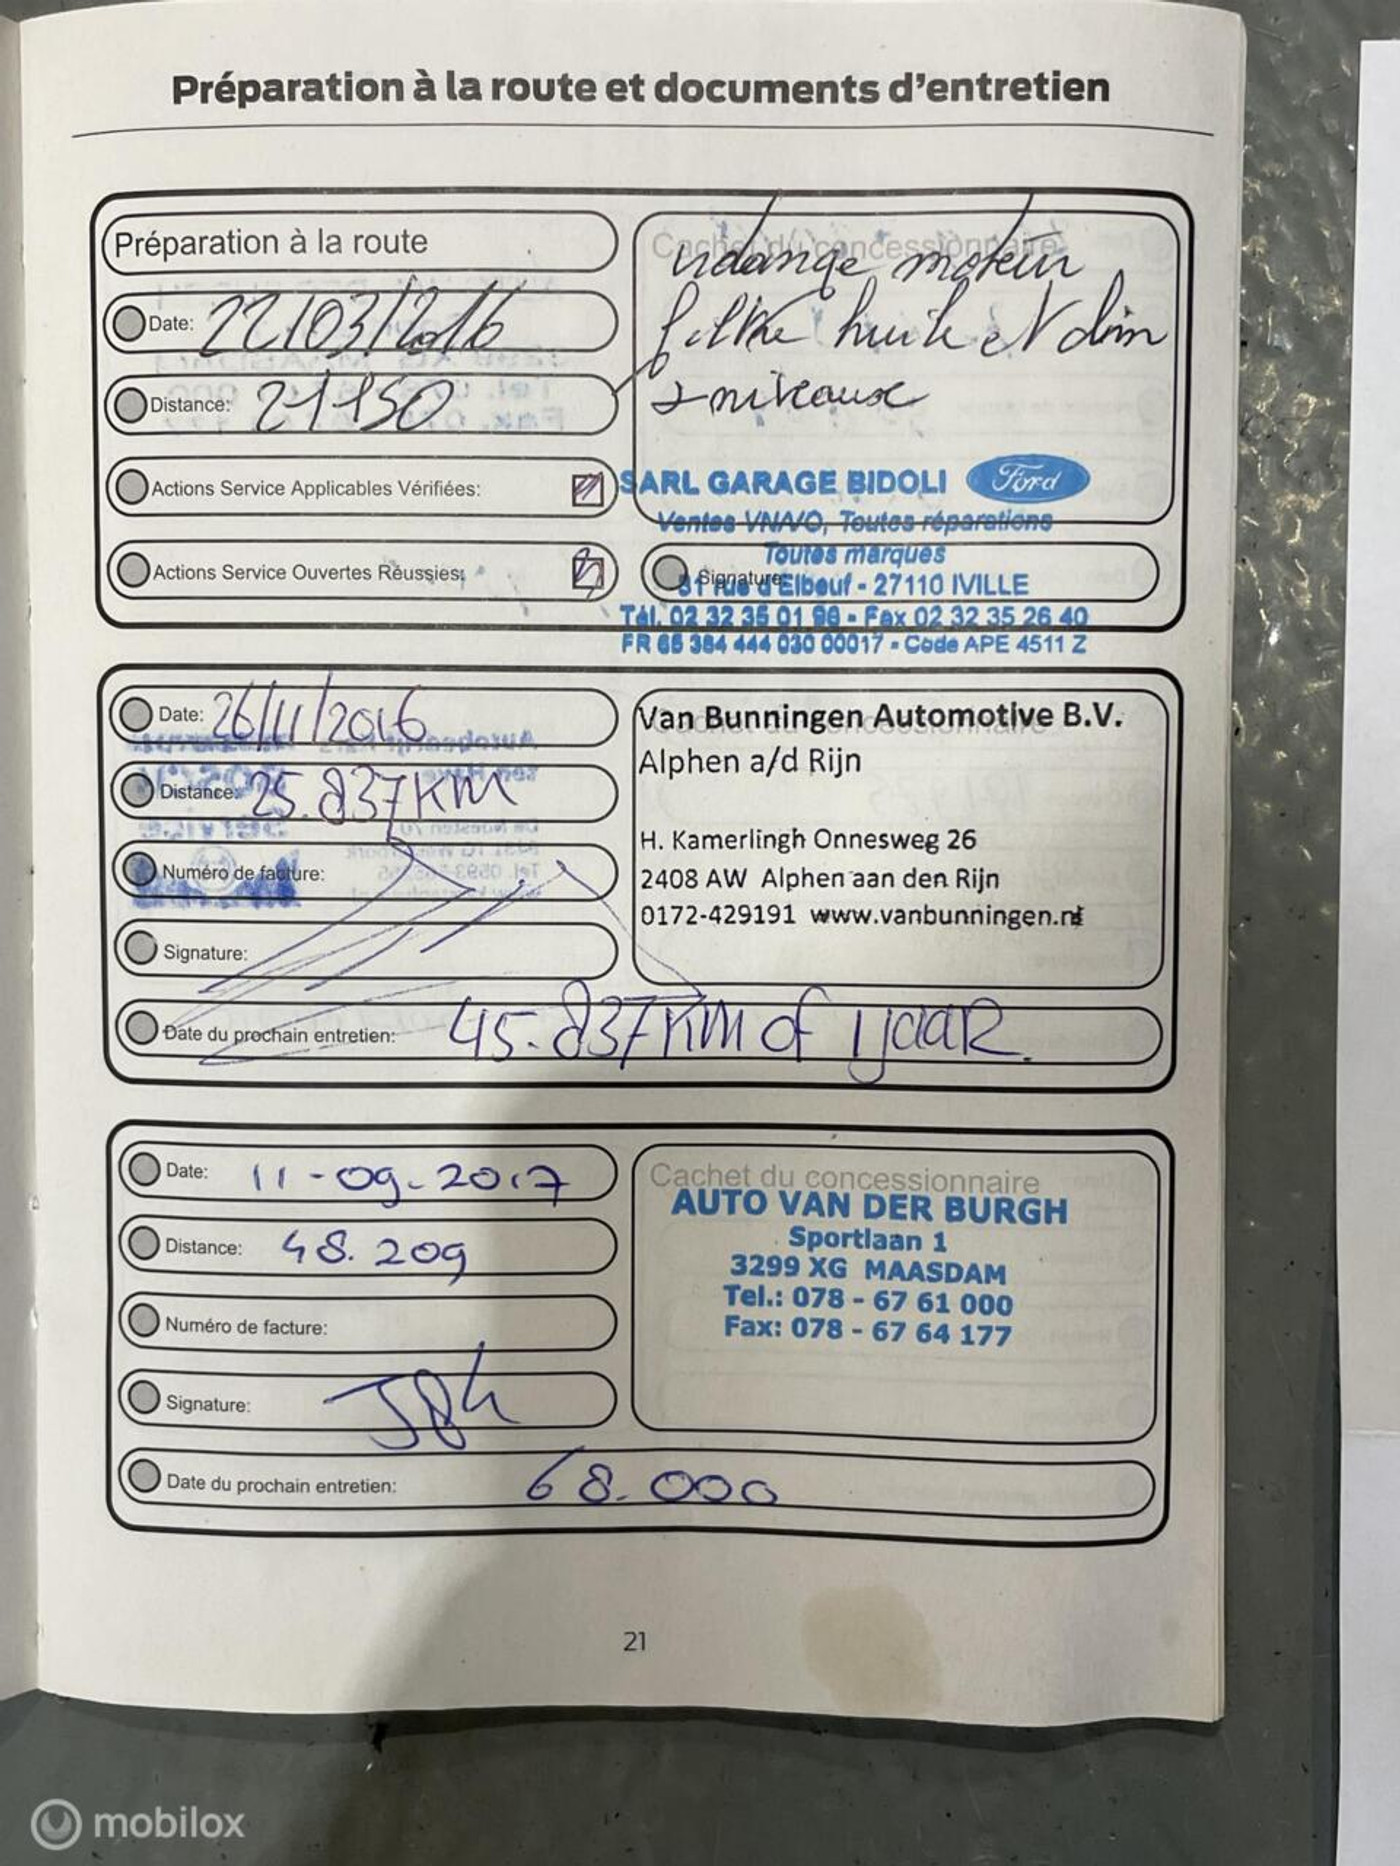 Préparation à la route et documents d'entretien
Préparation à la route
Date: 22/03/2016
Distance: 21150
Actions Service Applicables Vérifiées:
Actions Service Ouvertes Réussies:
Cachet du concessionnaire
vidange moteur
filtre huile et
niveaux
SARL GARAGE BIDOLI Ford
Ventes VN/VO, Toutes réparations
Toutes marques
Signature:
31 rue d'Elbeuf - 27110 IVILLE
Tél. 02 32 35 01 98 - Fax 02 32 35 26 40
FR 65 384 444 030 00017 - Code APE 4511 Z
Date: 26/11/2016
Distance: 25.837KM
Numéro de facture:
Signature:
Date du prochain entretien: 45.837KM of 1 jaar.
Van Bunningen Automotive B.V.
Alphen a/d Rijn
H. Kamerlingh Onnesweg 26
2408 AW Alphen aan den Rijn
0172-429191 www.vanbunningen.nl
Date: 11-09-2017
Distance: 48.209
Numéro de facture:
Signature:
Date du prochain entretien: 68.000
Cachet du concessionnaire
AUTO VAN DER BURGH
Sportlaan 1
3299 XG MAASDAM
Tel.: 078 - 67 61 000
Fax: 078 - 67 64 177
21
mobilox